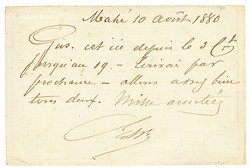 Mahé 10 Août 1880
Gus. est ici depuis le 3 ct
jusqu'au 19 - écrirai par
prochaine - allons assez bien
tous deux. Mille amitiés